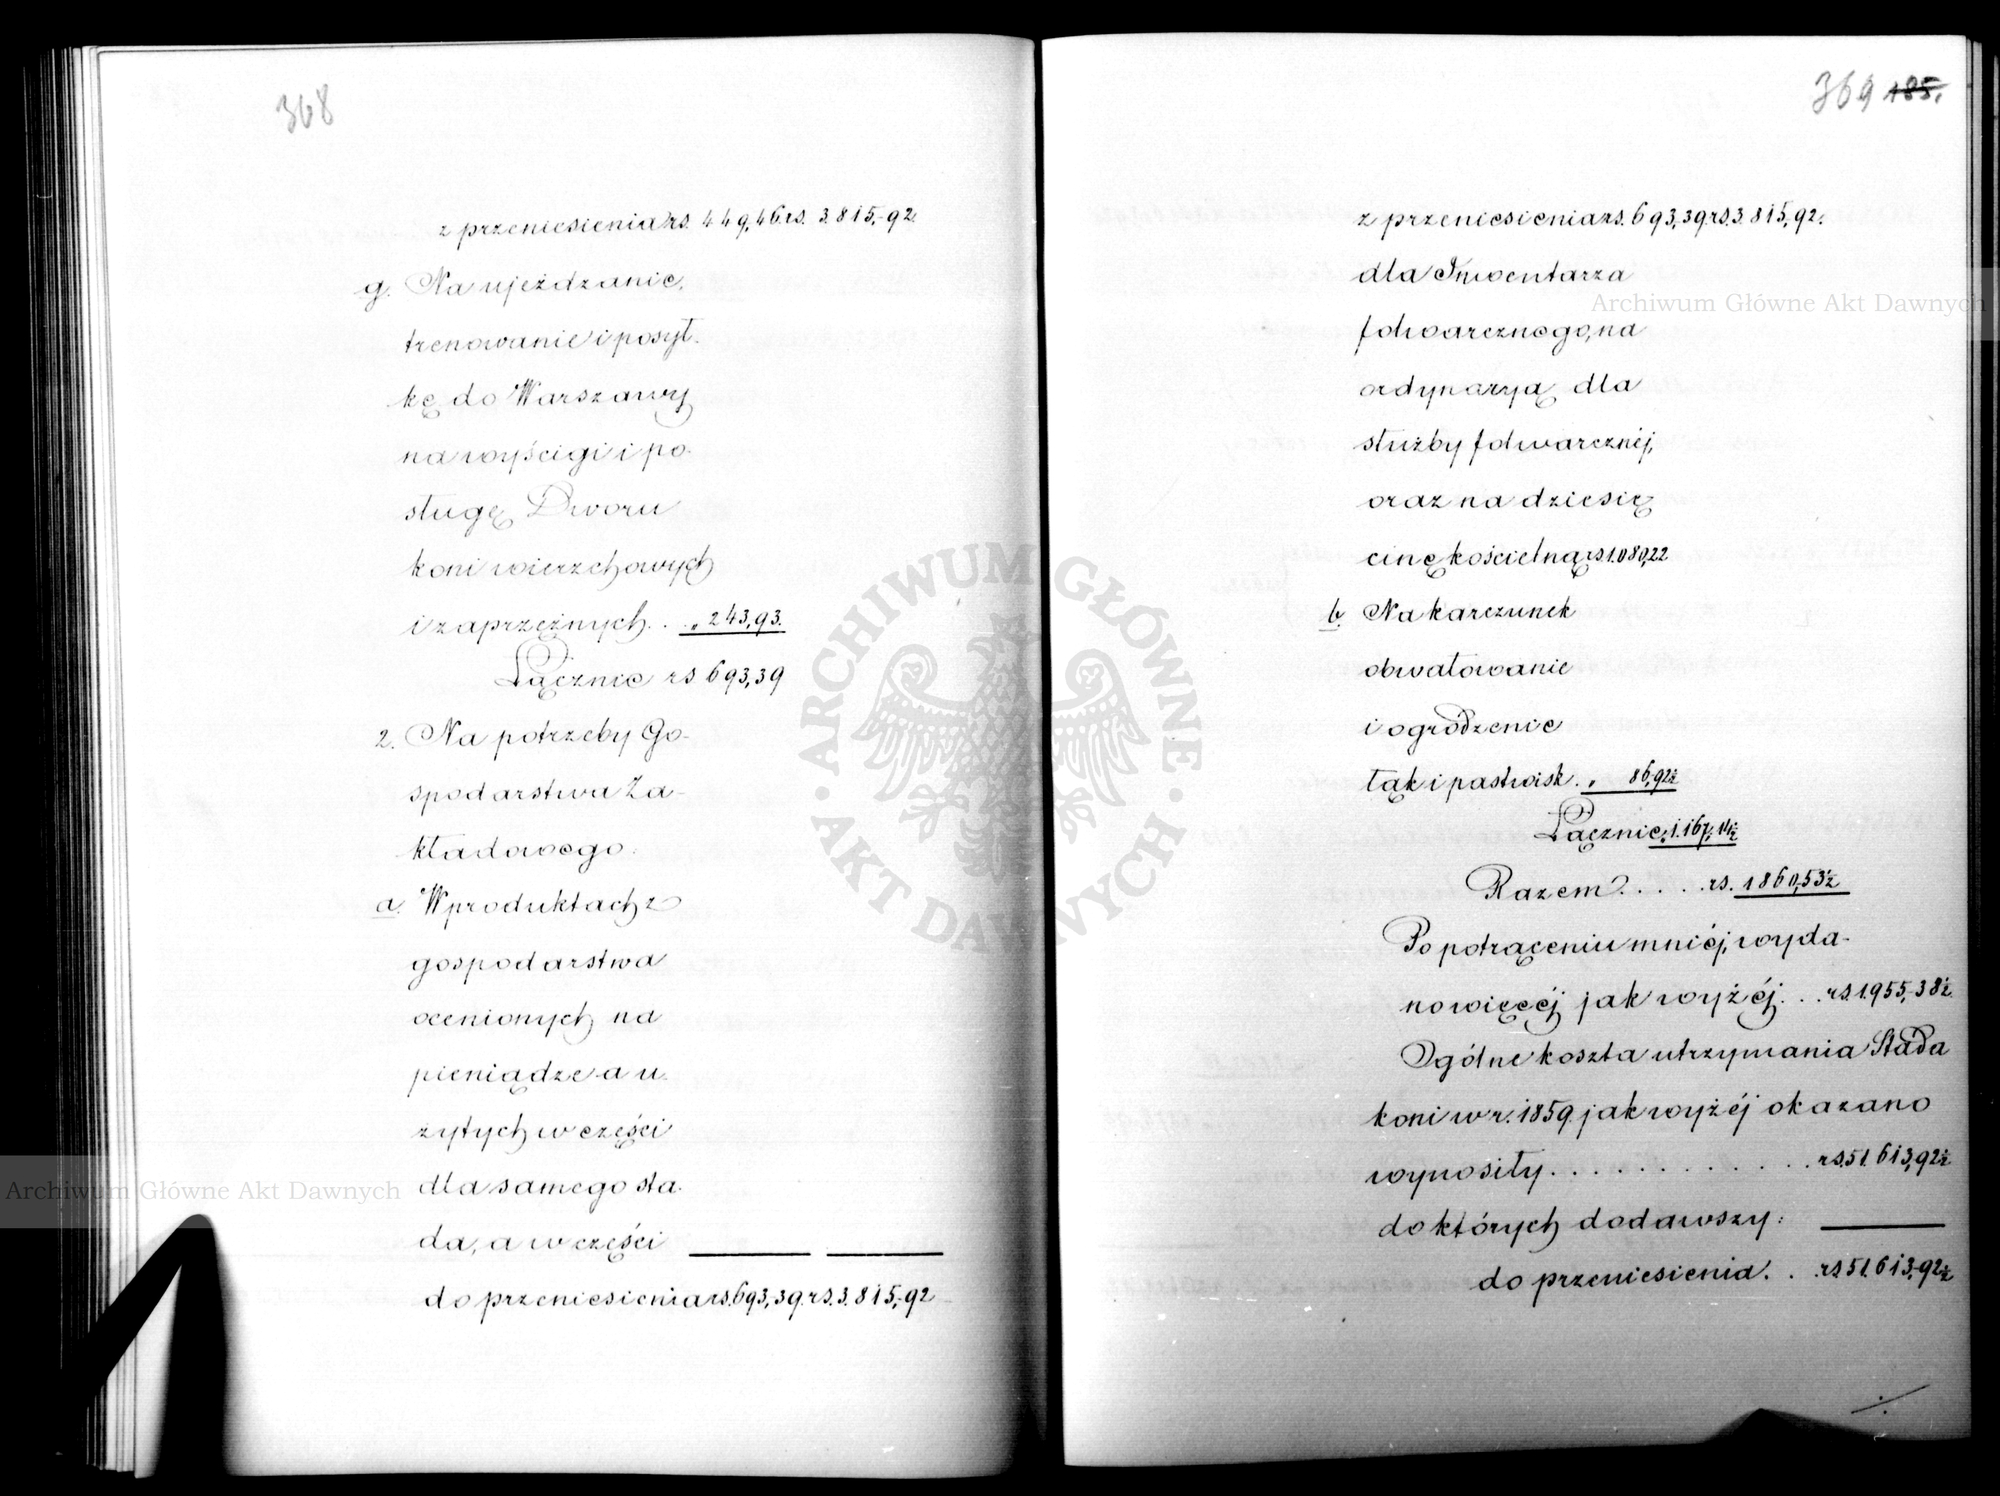 368
z przeniesienia rs. 449,46 rs. 3.815,-92
g. Na ujeżdżanie,
trenowanie i posył-
kę do Warszawy
na wyścigi i po-
sługę Dworu
koni wierzchowych
i zaprzężnych . . „ 243,93.
Łącznie rs 693,39
2. Na potrzeby Go-
spodarstwa Za-
kładowego.
a. W produktach z
gospodarstwa
ocenionych na
pieniądze a u-
żytych w części
dla samego sta-
da, a w części
do przeniesienia rs. 693,39. rs. 3.815,-92
369 185.
z przeniesienia rs. 693,39 rs. 3.815,92.
dla Inwentarza
folwarcznego, na
ordynaryą dla
służby folwarcznéj,
oraz na dziesię
cinę kościelną rs. 1.080,22
b. Na karczunek
obwałowanie
i ogrodzenie
łąk i pastwisk . „ 86,92½
Łącznie „ 1.167,14½
Razem . . . . . rs. 1860,53½
Po potrąceniu mniéj wyda-
no więcéj jak wyżéj . . rs. 1.955,-38½
Ogólne koszta utrzymania Stada
koni w r. 1859. jak wyżéj okazano
wynosiły . . . . . . . . . . . . . rs. 51.613,92½
do których dodawszy:
do przeniesienia . . rs 51.613,-92½
./.
Archiwum Główne Akt Dawnych
Archiwum Główne Akt Dawnych
ARCHIWUM GŁÓWNE
· AKT DAWNYCH ·